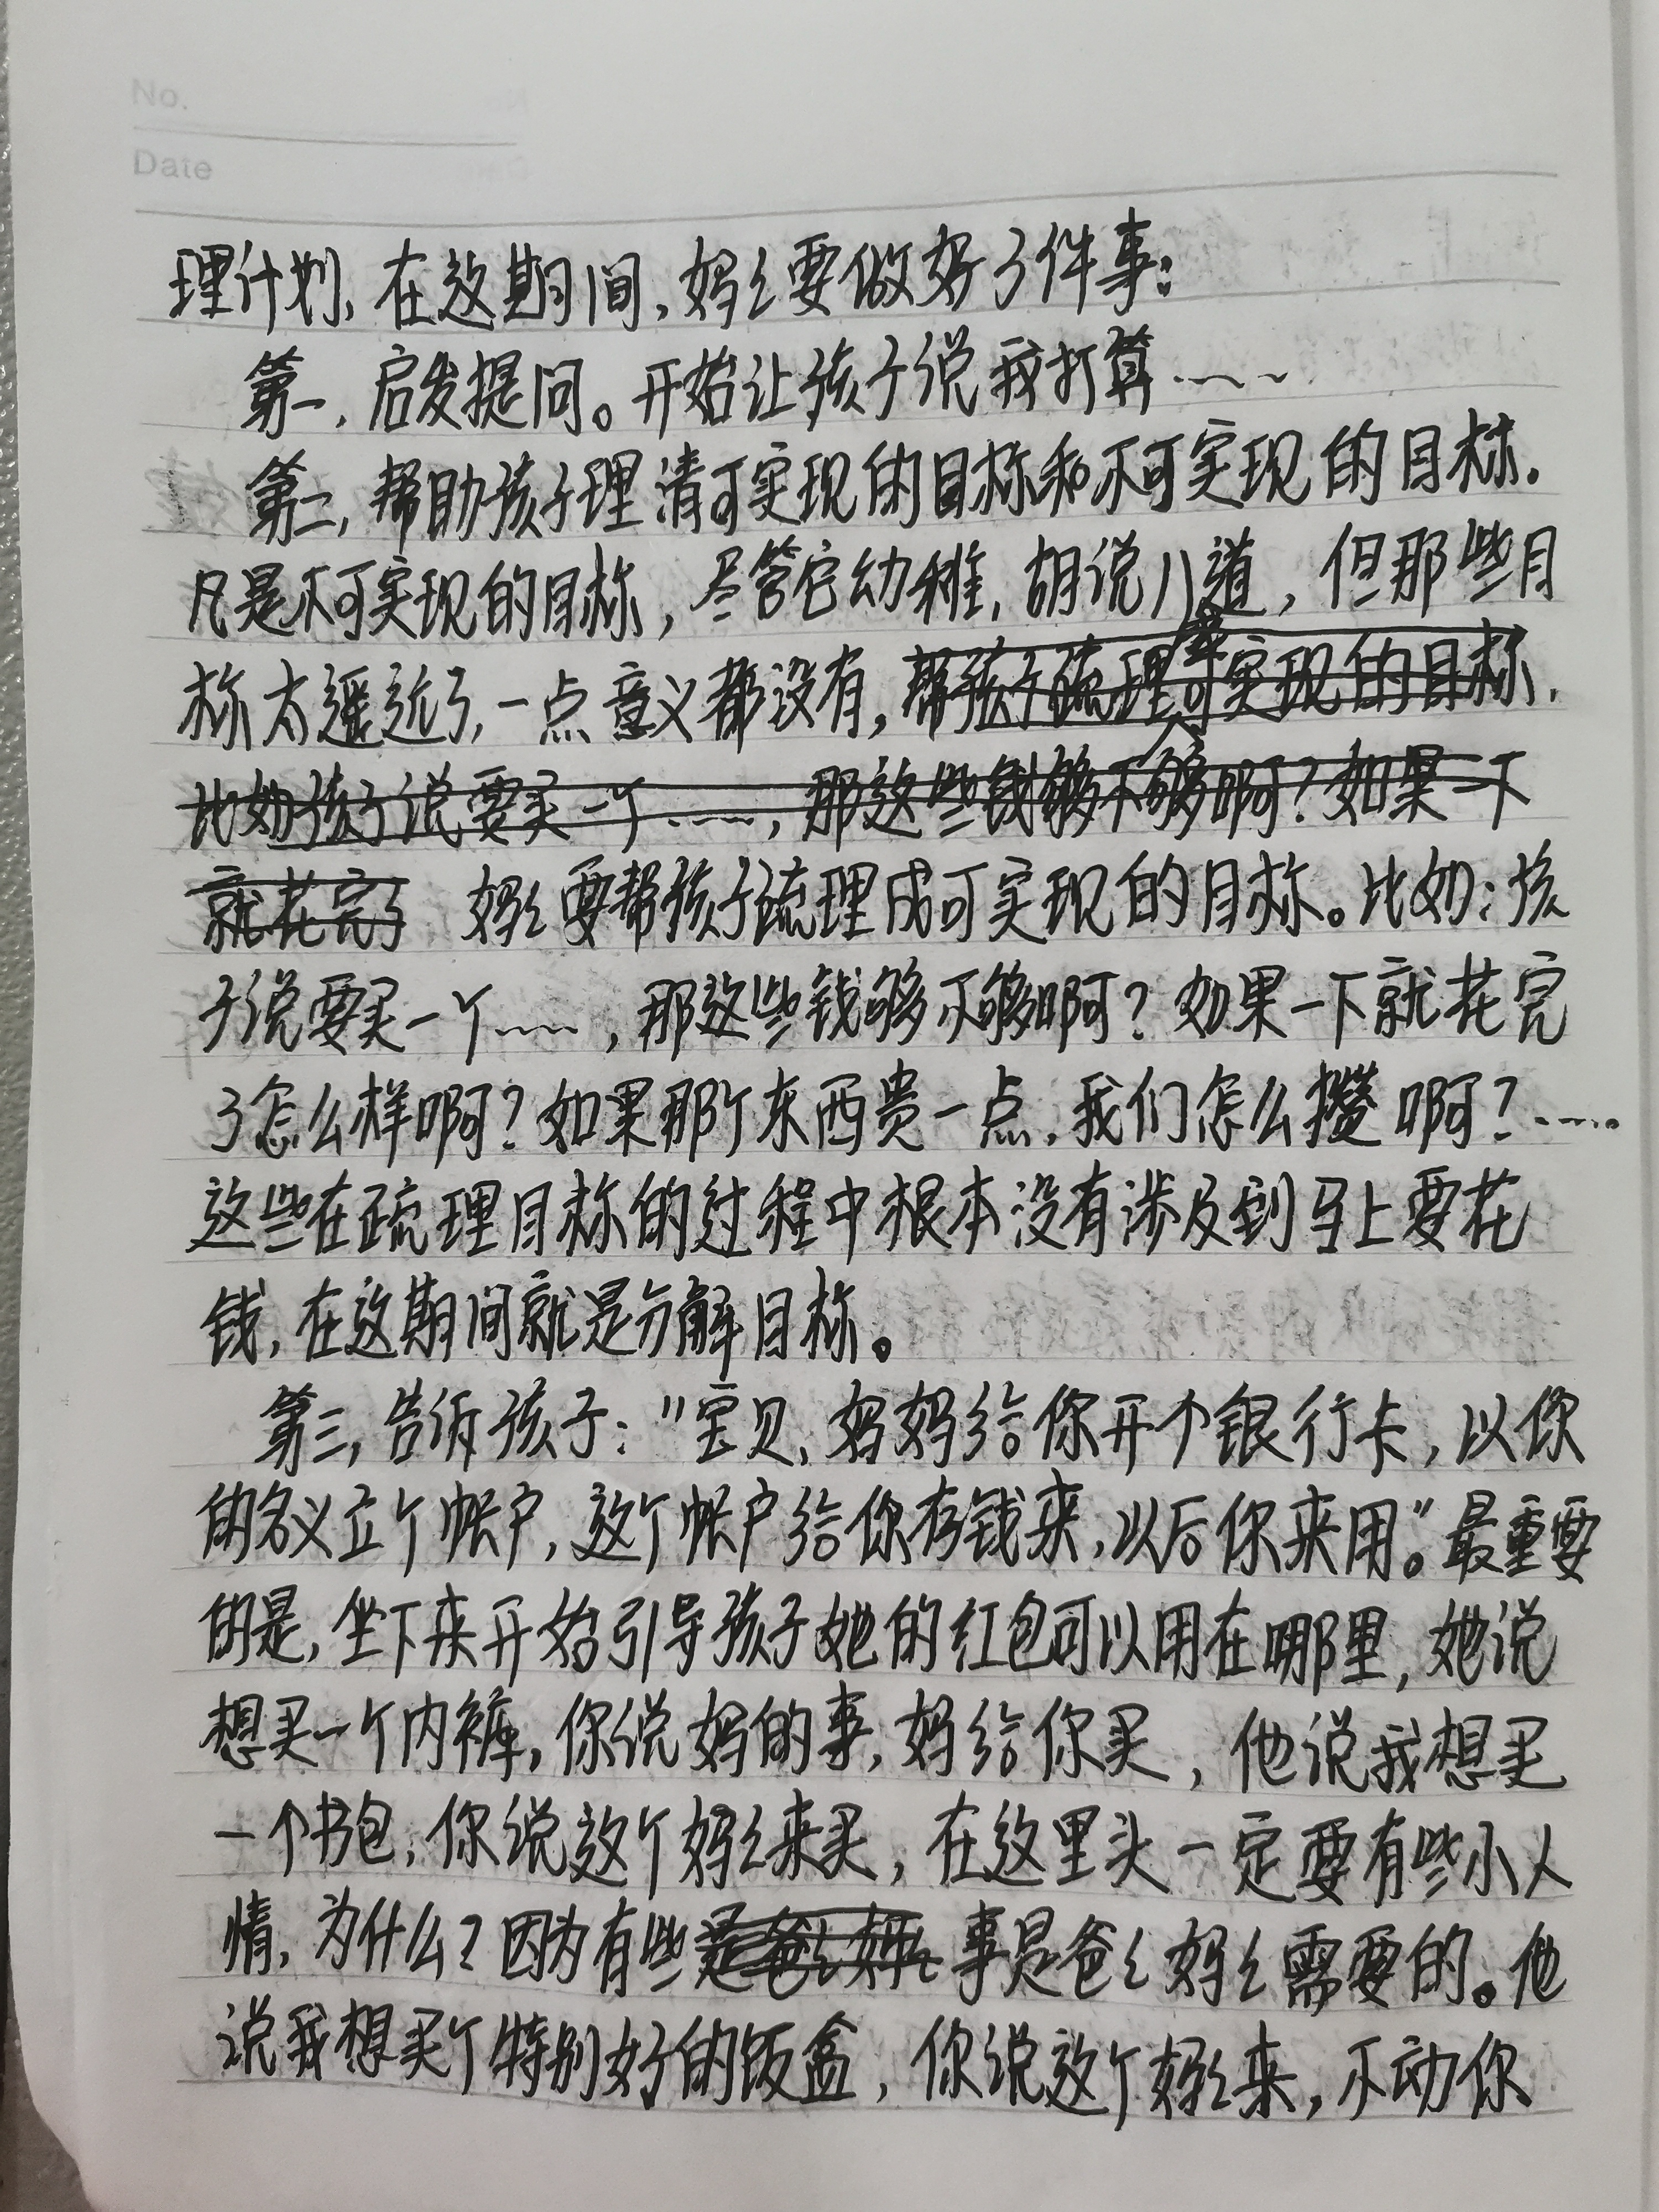 No.
Date
理计划,在这期间,妈々要做好3件事:
第一,启发提问。开始让孩子说我打算……
第二,帮助孩子理清可实现的目标和不可实现的目标.
凡是不可实现的目标,尽管它幼稚,胡说八道,但那些目
标太遥远了,一点意义都没有,帮孩子疏理可实现的目标.
比如孩子说要买一个……,那这些钱够不够啊?如果一下
就花完了 妈々要帮孩子疏理成可实现的目标。比如:孩
子说要买一个……,那这些钱够不够啊?如果一下就花完
了怎么样啊?如果那个东西贵一点,我们怎么攒啊?……
这些在疏理目标的过程中根本没有涉及到马上要花
钱,在这期间就是分解目标。
第三,告诉孩子:"宝贝,妈妈给你开个银行卡,以你
的名义立个帐户,这个帐户给你存钱来,以后你来用。"最重要
的是,坐下来开始引导孩子她的红包可以用在哪里,她说
想买一个内裤,你说妈的事,妈给你买,他说我想买
一个书包,你说这个妈々来买,在这里头一定要有些小人
情,为什么?因为有些是爸々妈々事是爸々妈々需要的。他
说我想买个特别好的饭盒,你说这个妈々来,不动你